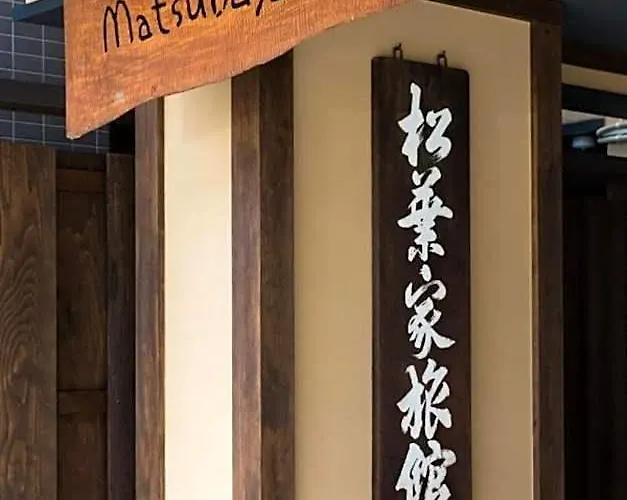 Matsuba
松葉家旅館